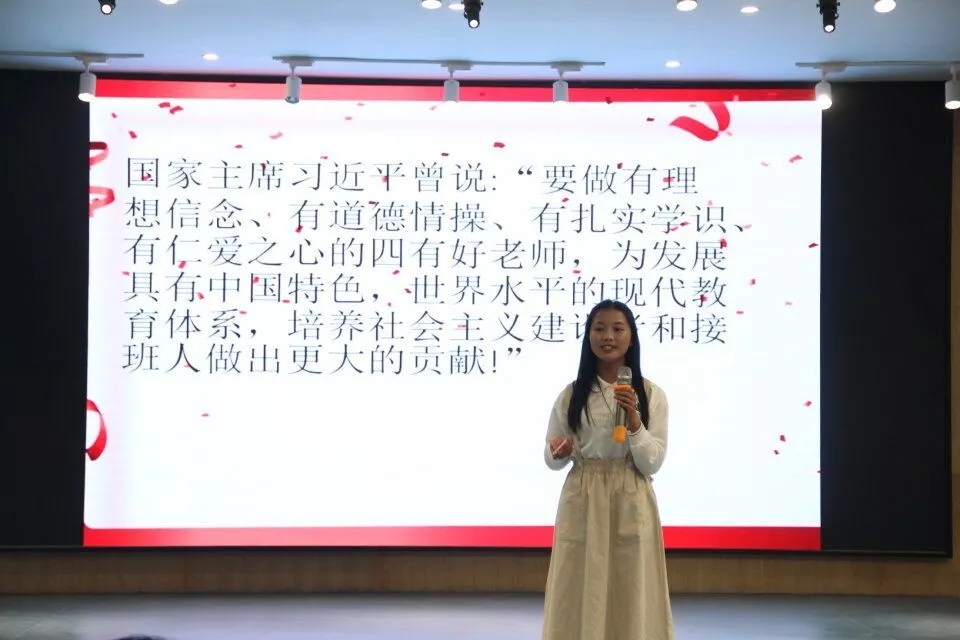 国家主席习近平曾说:“要做有理
想信念、有道德情操、有扎实学识、
有仁爱之心的四有好老师，为发展
具有中国特色，世界水平的现代教
育体系，培养社会主义建设者和接
班人做出更大的贡献!”